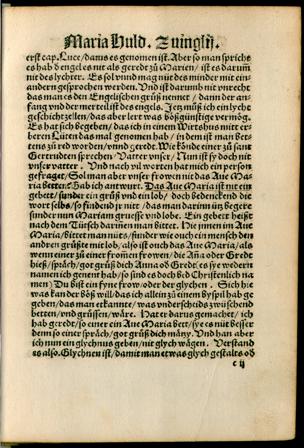 Maria Huld. Zwinglij.
erst cap. Luce/darus es genomen ist. Aber so man sprichs
es hab d engel es nit als gered zů Marien/ist es darum̃
nit des lychter. Es sol vnnd mag nüt des minder mit ein-
andern gesprochen werden. Vnd ist darumb nit vnrecht
das man es den Engelischen grůß nennet/dann der an-
fang vnd der merteil ist des engels. Jetz můß ich ein lycht
geschicht zellen/das aber lert was bößgünstige vermög.
Es hat sich begeben/das ich in einem Wirtshus mit er-
beren Lüten das mal genomen hab/in dem ist man Betz-
tens zů red worden/vnnd geredt. Wie könde einer zů sanct
Gertruden sprechen/Vatter vnser/Nun ist sy doch nit
vnser vatter. Vnd nach vil worten hat mich ein person
gefraget/Sol man aber vnser frowen nit das Aue Ma-
ria betten: hab ich antwurt. Das Aue Maria ist nit ein
gebett/sunder ein grůß vnd ein lob/doch bedenckend die
wort selbs/so findend jr nit/das man darinn ütz begere
sunder nun Mariam gruesse vnd lobe. Ein gebett heißt
nach dem Tütsch darinn man bittet. Nie jmen im Aue
Maria/bittet man nüts/sunder wie ouch ein mensch den
andren grüßte mit lob/also ist ouch das Aue Maria/als
wenn einer zů einer from̃en frowen/die Aña oder Gredt
hieß/spräch/got grüß dich Anna od Gredt/es sye wedern
namen ich genent hab/so sind es doch beid Christenlich na-
men) Du bist ein fyne frow/oder der glychen. Sich hie
was kan der böß will/das ich allein zů einem byspil hab ge-
geben/das man erkanntet/was vnderscheids zwüschend
betten/vnd grüssen/wäre. Hat er darus gemachet/ich
hab geredt/so einer ein Aue Maria bett/sye es nüt besser
denn so einer spräch/got grüß dich